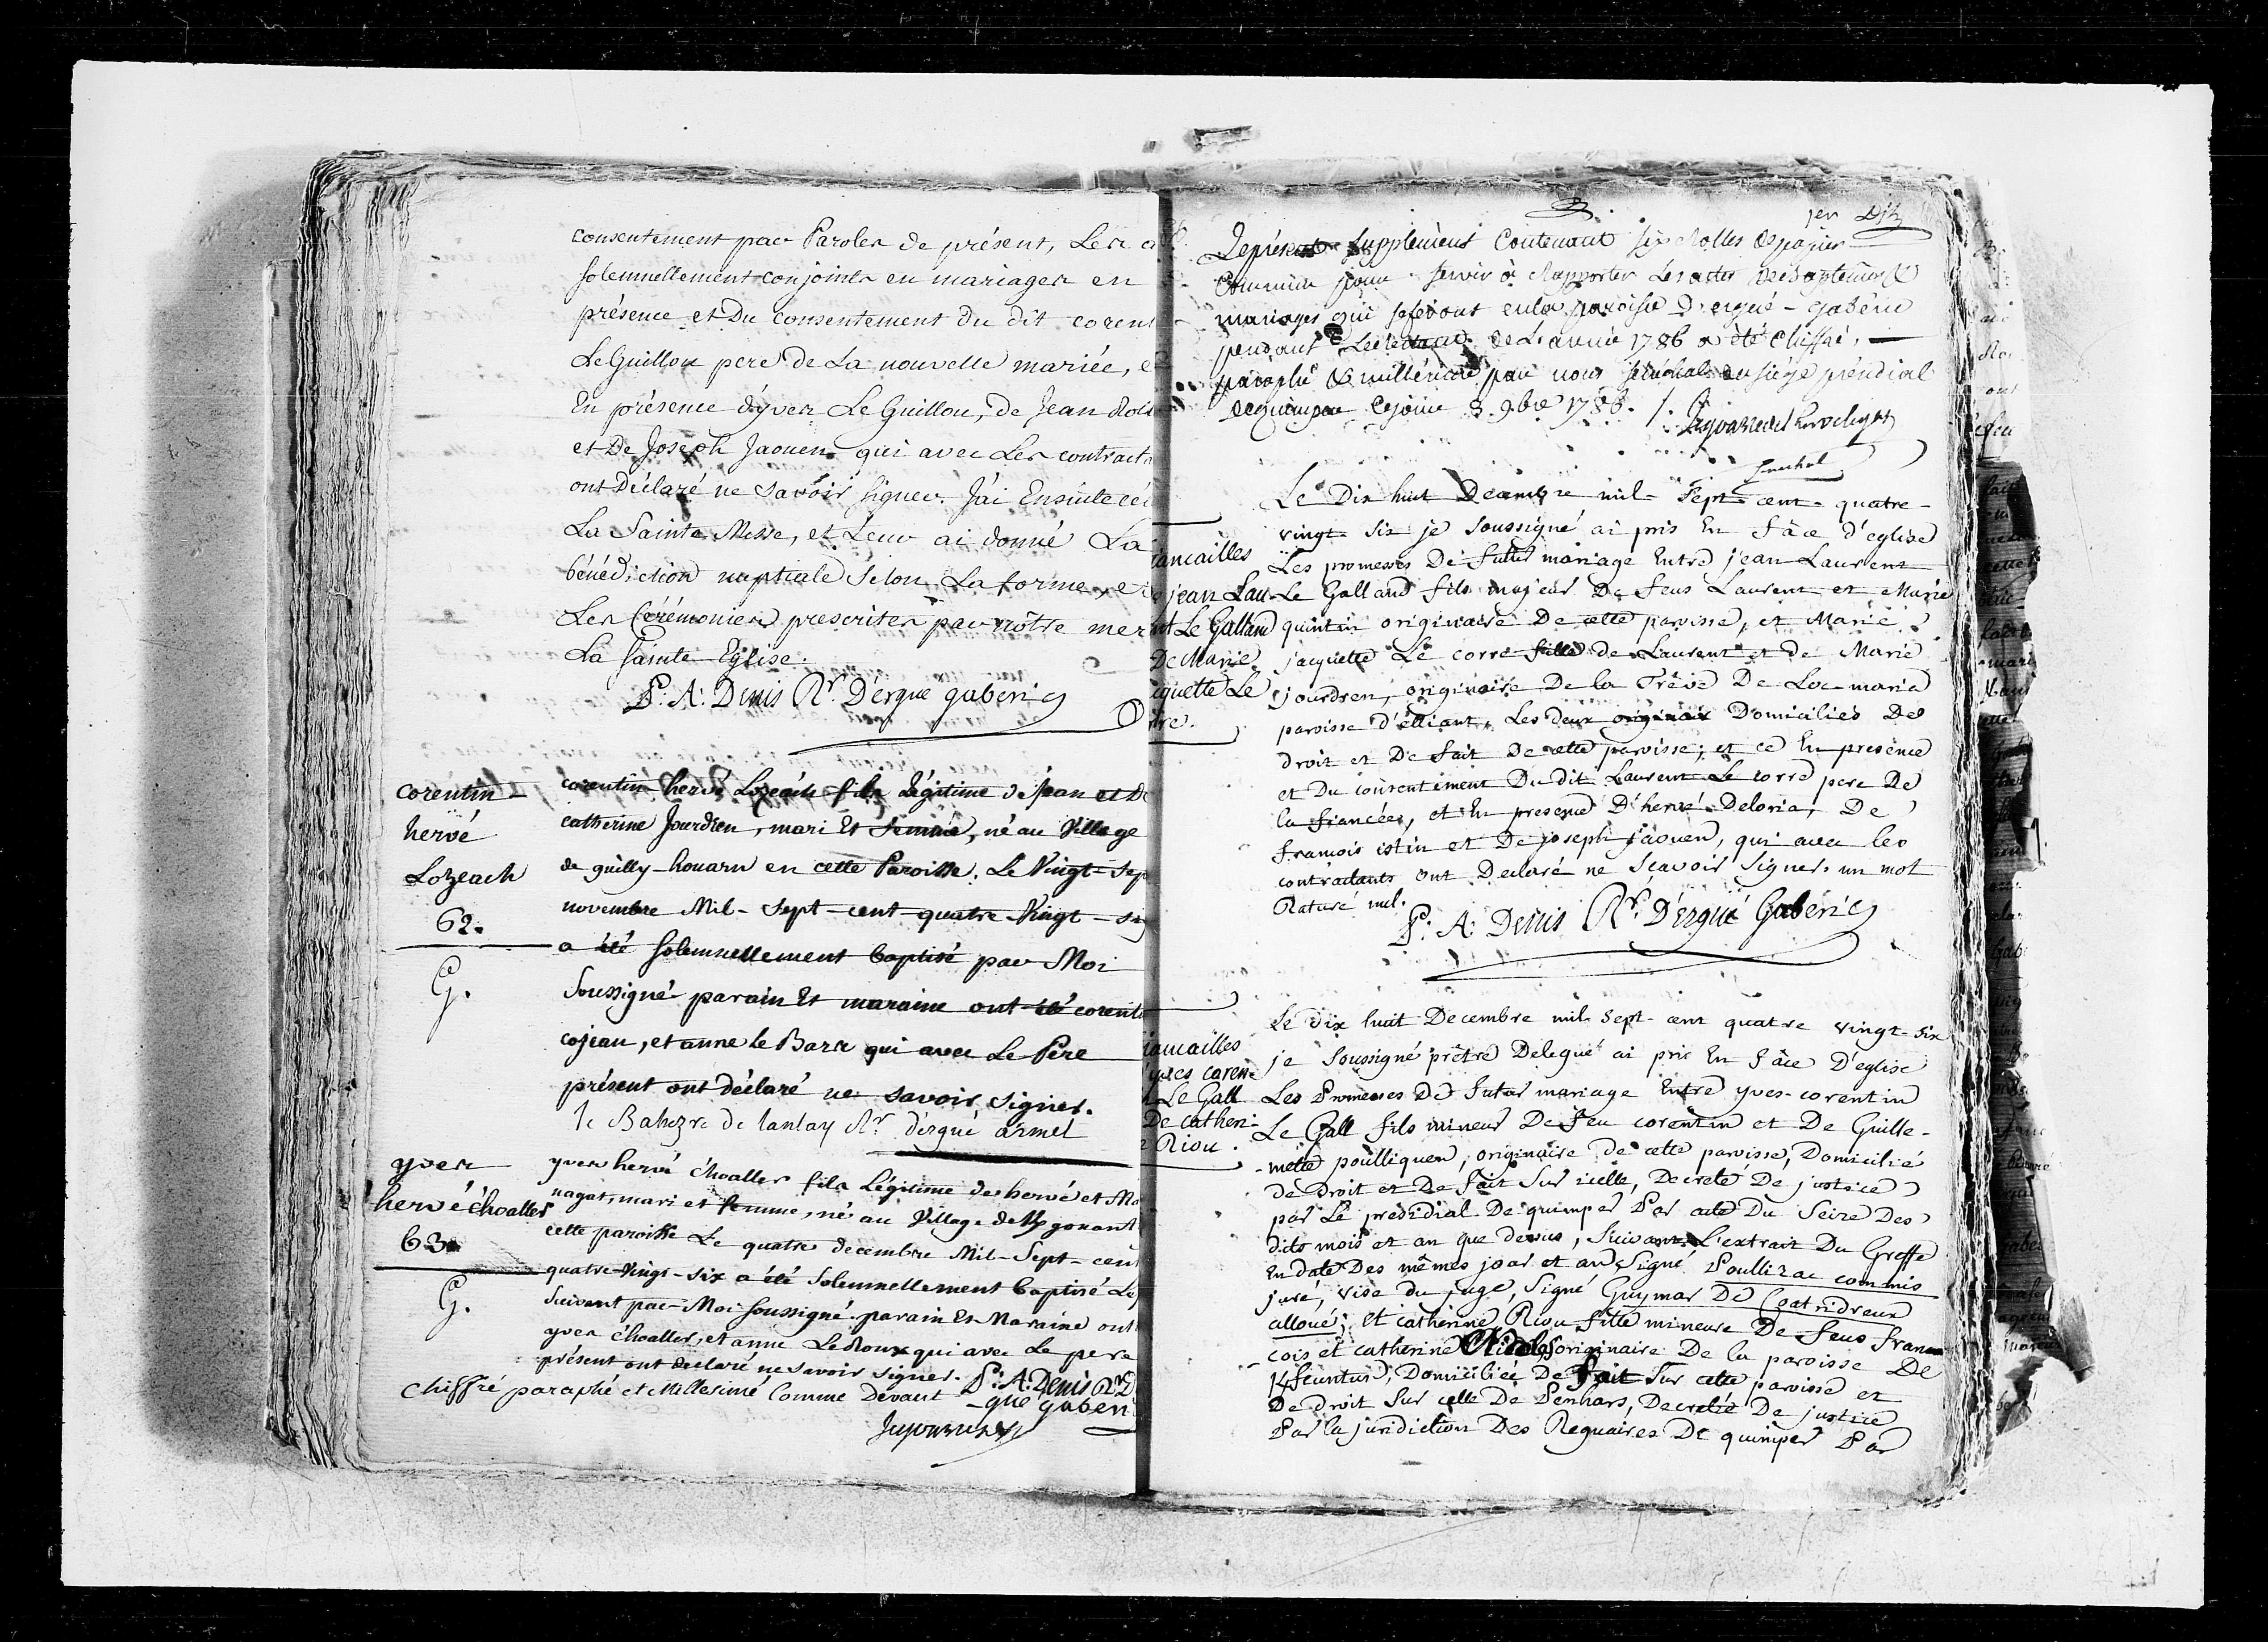 consentement par Paroles de présent, Les ai
solemnellement conjoints en mariages en
présence et Du consentement du dit corent
Le Guillou pere de La nouvelle mariée, e
En présence d'yves Le Guillou, de Jean
et De Joseph Jaouen qui avec Les contract
ont Déclaré ne savoir signer. J'ai Ensuite cél
La Sainte Messe, et Leur ai donné La
bénédiction nuptiale Selon La forme, e
Les Cérémonies prescrites par nôtre mer
La sainte Eglise.
P: A: Denis Rr. D'ergue gaberic
corentin-
hervé
Lozeach
62.
G.
corentin-hervé Lozéach fils Légitime de jean et De
catherine Jourdren, mari Et femme, né au Village
de guilly-houarn en cette Paroisse. Le Vingt-Sep
novembre Mil-Sept-cent-quatre-Vingt-six
a été solemnellement baptisé par Moi
Soussigné parain Et maraine ont été corenti
cojean, et anne le Barz qui avec Le Père
présent ont déclaré ne savoir signer.
le Bahezre de lanlay Rr. d'ergué armel
yves
hervé êhoalles
63.
G.
yves hervé êhoalles fils Légitime de hervé et Ma
nagat, mari et femme, né au Village de gonant
cette paroisse Le quatre decembre Mil-Sept-cent
quatre-Vingt-six a été Solemnellement baptisé Le
Suivant par Moi Soussigné. parain Et Maraine ont
yves êhoalles, et anne Le Roux qui avec Le pere
présent ont declaré ne savoir signer.
P: A: Denis Rr. D
-gue gaberi
Chiffré paraphé et Millesimé Comme Devant
Le présent Supplement Contenant six Rolles de papier
Commun pour servir à Rapporter Les actes de baptemes &
mariages qui se feront en la paroisse d'ergué-gabéric
pendant Le de L'année 1786 a été chiffré,
paraphé & millésimé par nous sénéchal au siége présidial
de quimper ce jour 3. 9bre 1786.
ancailles
e jean Lau-
nt Le Galland
De Marie
cquette Le
orre.
Le Dix huit Decembre mil-Sept-cent-quatre-
vingt-six je soussigné ai pris En fâce d'eglise
Les promesses De futur mariage Entre jean Laurent
Le Galland fils majeur De feus Laurent et Marie
quintin originaire De cette paroisse, et Marie
jacquette Le corre fille de Laurent et de Marie
jourdren, originaire De la Trêve De Loc-maria
paroisse d'élliant, Les deux originair Domiciliés De
droit et De fait De cette paroisse; et ce En presence
et Du consentement Du dit Laurent Le corre pere De
la fiancée, et En presence D'hervé Deloria, De
francois istin et De joseph jaouen, qui avec les
contractants ont Declaré ne Sçavoir signer. un mot
Raturé nul.
P: A: Denis Rr. D'ergué Gabéric
iancailles
yves coren-
Le Gall
De catheri-
e Riou.
Le Dix huit Decembre mil Sept-cent quatre vingt-six
je soussigné prêtre Delegué ai pris En fâce D'eglise
Les Promesses De futur mariage Entre yves-corentin
Le Gall fils mineur De feu corentin et De Guille-
-mette poulliquen, originaire de cette paroisse, Domicilié
de Droit et De fait Sur icelle, Decreté De justice
par Le presidial De quimper Par acte Du Seize Des
dits mois et an que dessus, Suivant L'extrait Du Greffe
En date Des mêmes jour et an Signé Soullirac commis
juré, visé du juge, Signé Guymar De Coatridreux
alloué; et catherine Riou fille mineure De feus Fran
cois et catherine originaire De la paroisse De
Kfeunteun, Domiciliée De Fait Sur cette paroisse et
De Droit Sur celle De Penhars, Decretée De justice
Par la juridiction Des Reguaires De quimper Par